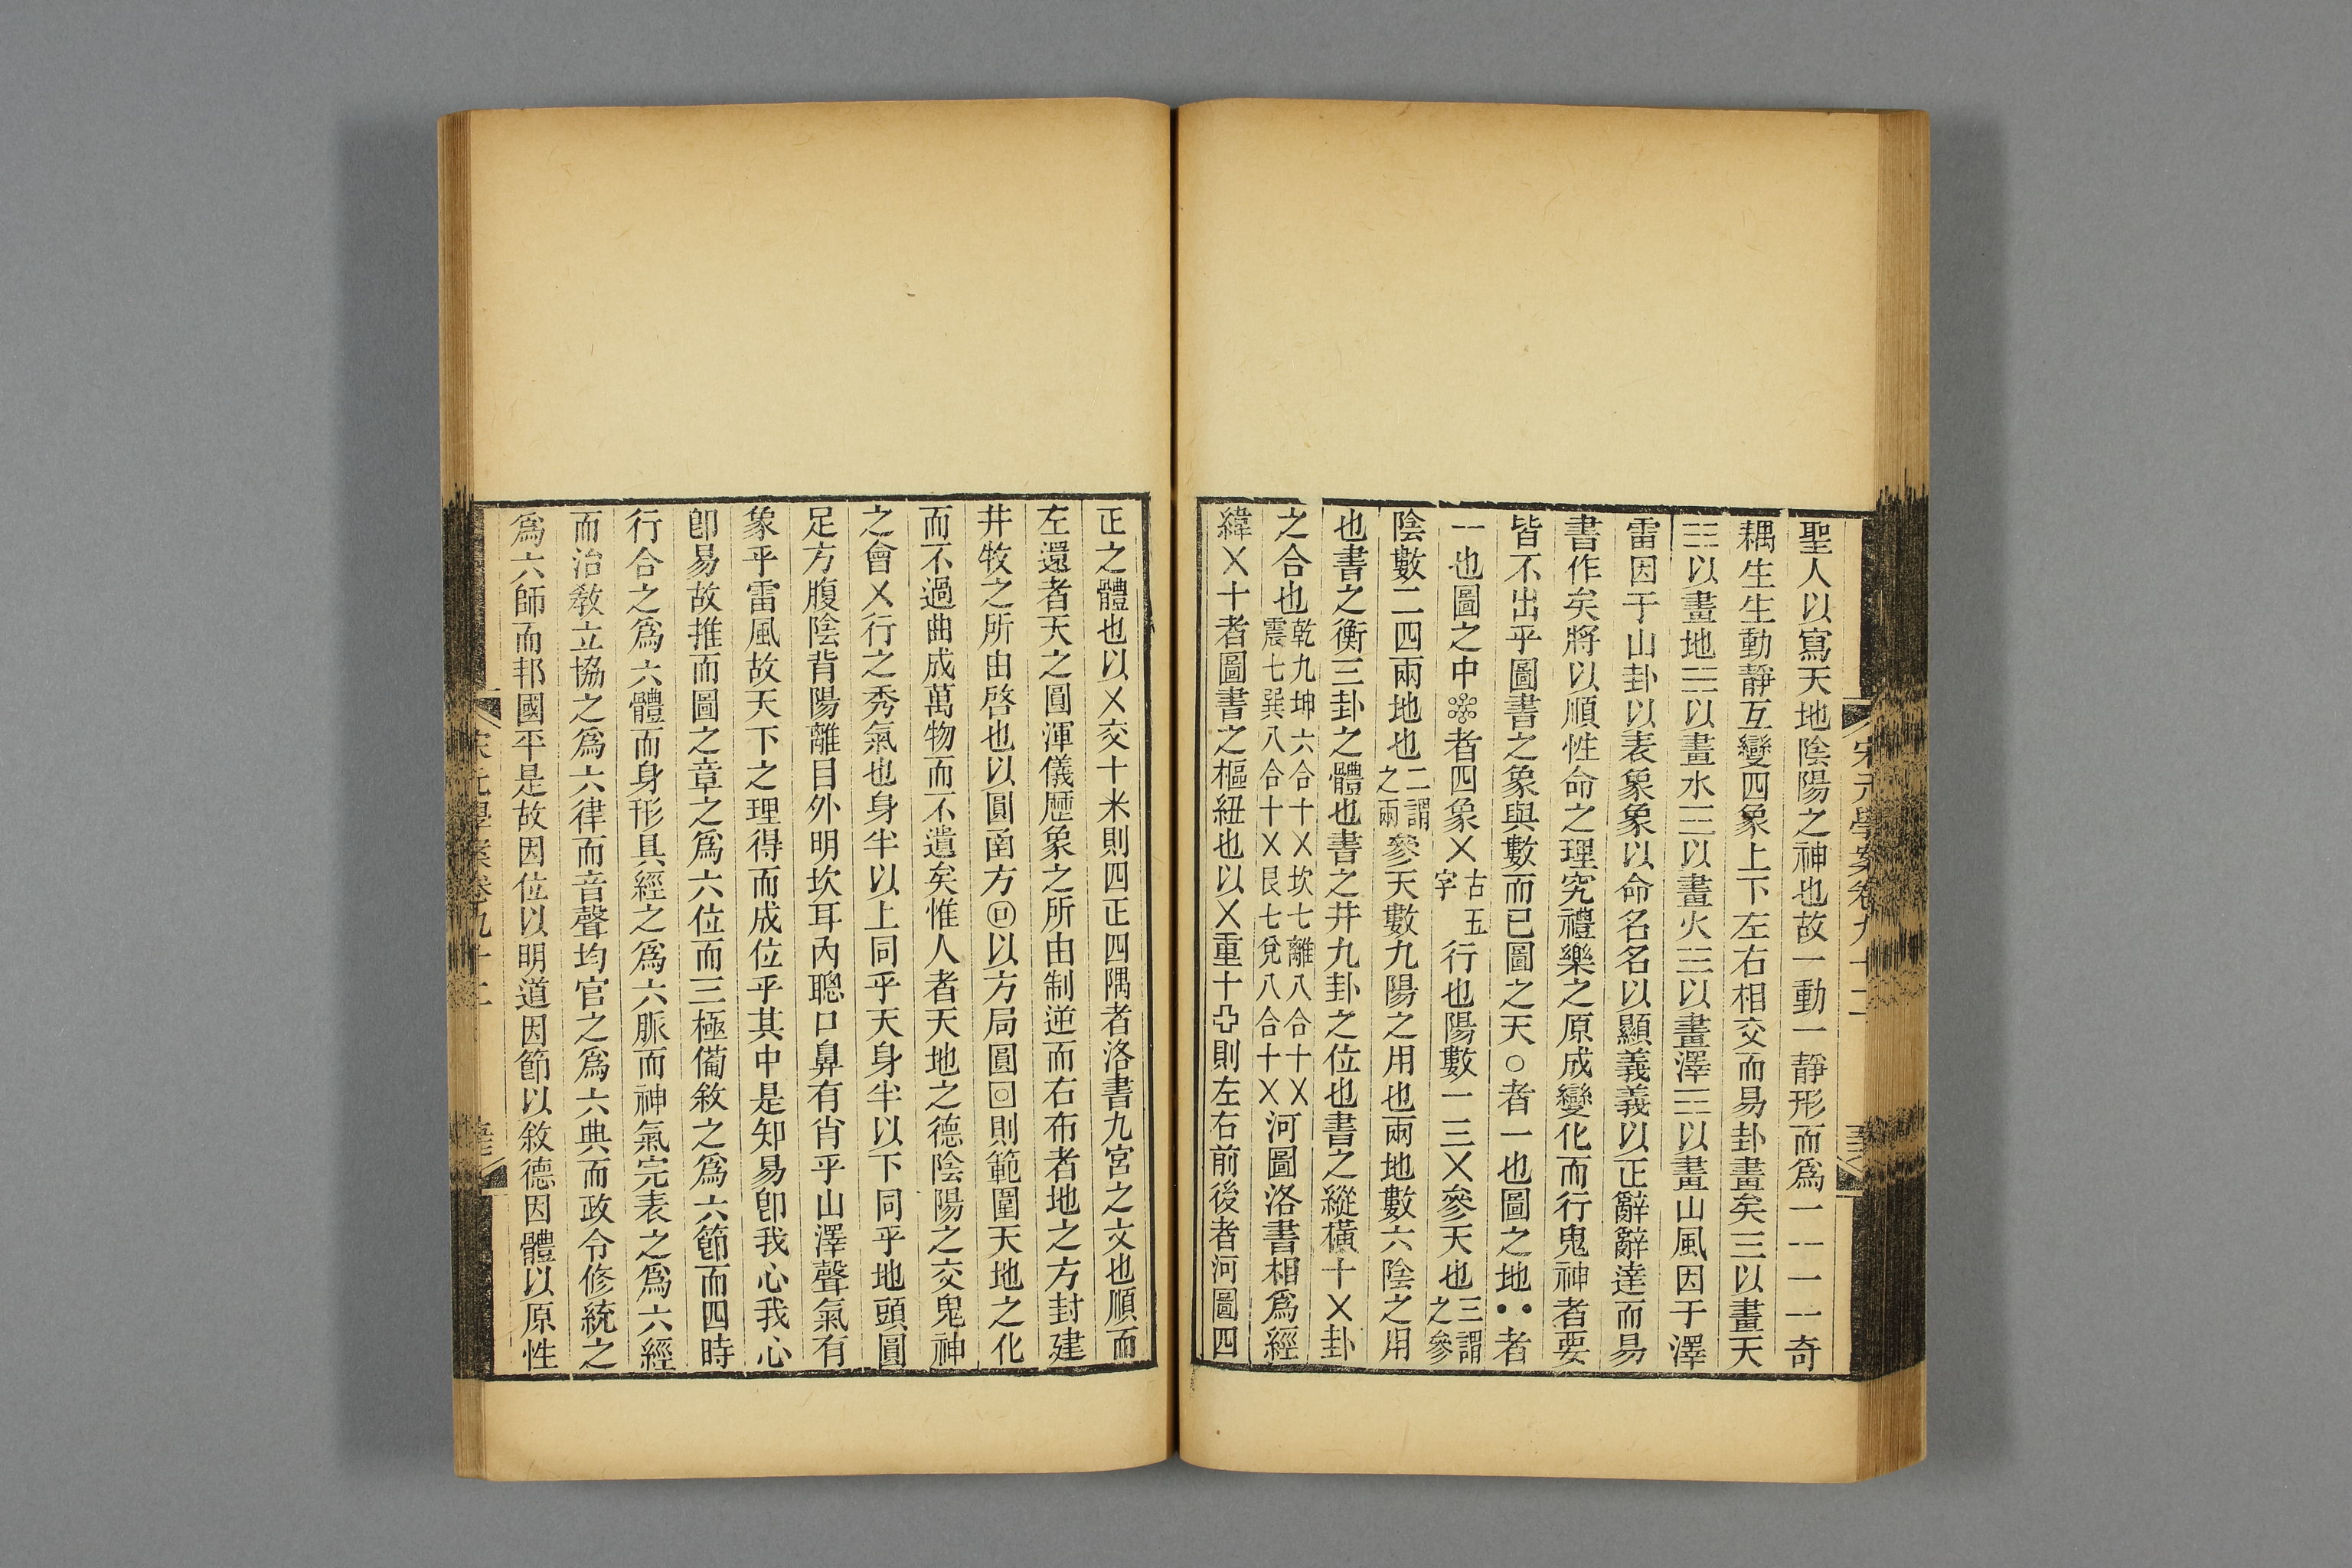 聖人以寫天地陰陽之神也故一動一靜形而爲一--一--奇
耦生生動靜互變四象上下左右相交而易卦畫矣☰以畫天
☷以畫地☵以畫水☲以畫火☱以畫澤☶以畫山風因于澤
雷因于山卦以表象象以命名名以顯義義以正辭辭達而易
書作矣將以順性命之理究禮樂之原成變化而行鬼神者要
皆不出乎圖書之象與數而已圖之天○者一也圖之地••者
一也圖之中者四象㐅古五字行也陽數一三㐅參天也三謂之參
陰數二四兩地也二謂之兩參天數九陽之用也兩地數六陰之用
也書之衡三卦之體也書之井九卦之位也書之縱橫十㐅卦
之合也乾九坤六合十㐅坎七離八合十㐅震七巽八合十㐅艮七兌八合十㐅河圖洛書相爲經
緯㐅十者圖書之樞紐也以㐅重十則左右前後者河圖四
正之體也以㐅交十米則四正四隅者洛書九宮之文也順而
左還者天之圓渾儀歷象之所由制逆而右布者地之方封建
井牧之所由啓也以圓函方以方局圓則範圍天地之化
而不過曲成萬物而不遺矣惟人者天地之德陰陽之交鬼神
之會㐅行之秀氣也身半以上同乎天身半以下同乎地頭圓
足方腹陰背陽離目外明坎耳內聰口鼻有肖乎山澤聲氣有
象乎雷風故天下之理得而成位乎其中是知易卽我心我心
卽易故推而圖之章之爲六位而三極備敘之爲六節而四時
行合之爲六體而身形具經之爲六脈而神氣完表之爲六經
而治敎立協之爲六律而音聲均官之爲六典而政令修統之
爲六師而邦國平是故因位以明道因節以敘德因體以原性
宋元學案卷九十二